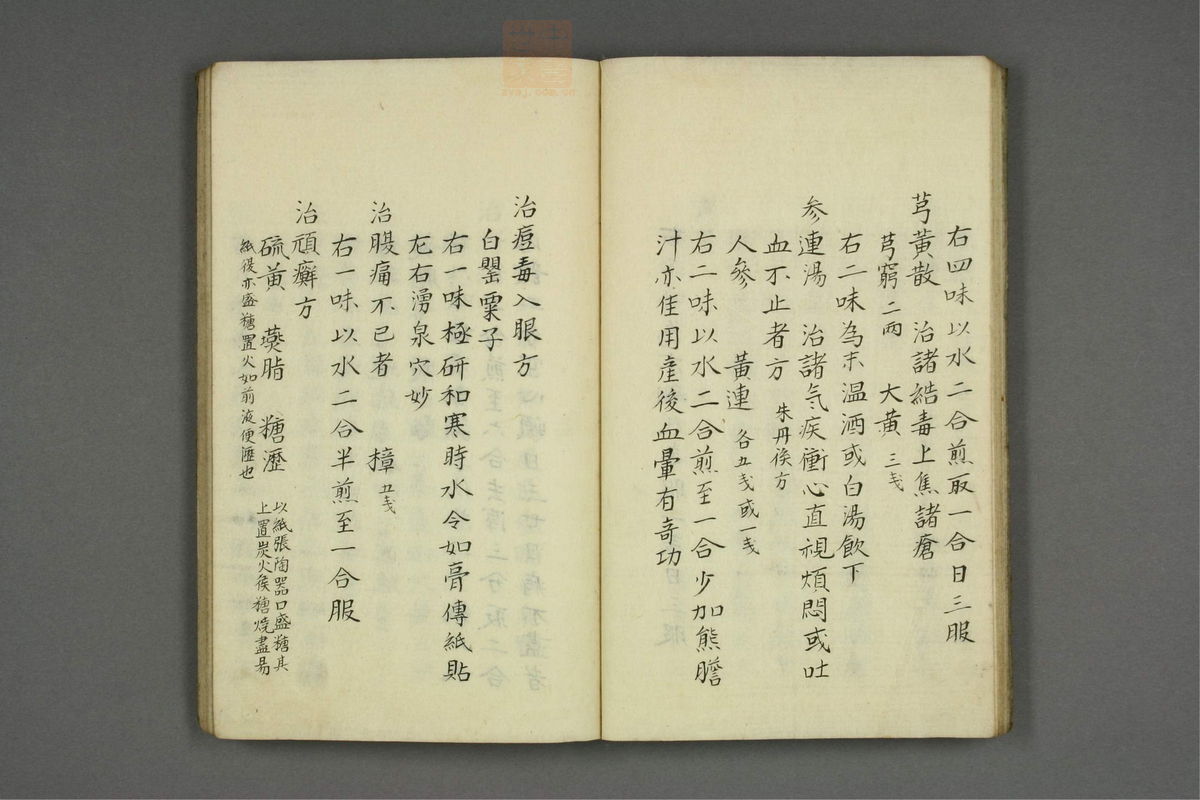 右四味以水二合煎取一合日三服
芎黃散 治諸結毒上焦諸瘡
芎窮二兩 大黃三戔
右二味為末温酒或白湯飲下
参連湯 治諸氣疾衝心直視煩悶或吐
血不止者方 朱丹侯方
人參 黃連 各五戔或一戔
右二味以水二合煎至一合少加熊膽
汁亦佳用産後血暈有竒功
治痘毒入眼方
白罌粟子
右一味極研和寒時水令如膏傳紙貼
左右湧泉穴妙
治腹痛不已者 樟五戔
右一味以水二合半煎至一合服
治頑癬方
硫黃 𤎅脂 糖瀝 以紙張陶器口盛糖其
上置炭火矦糖燒盡易
紙復亦盛糖置火如前液便瀝也